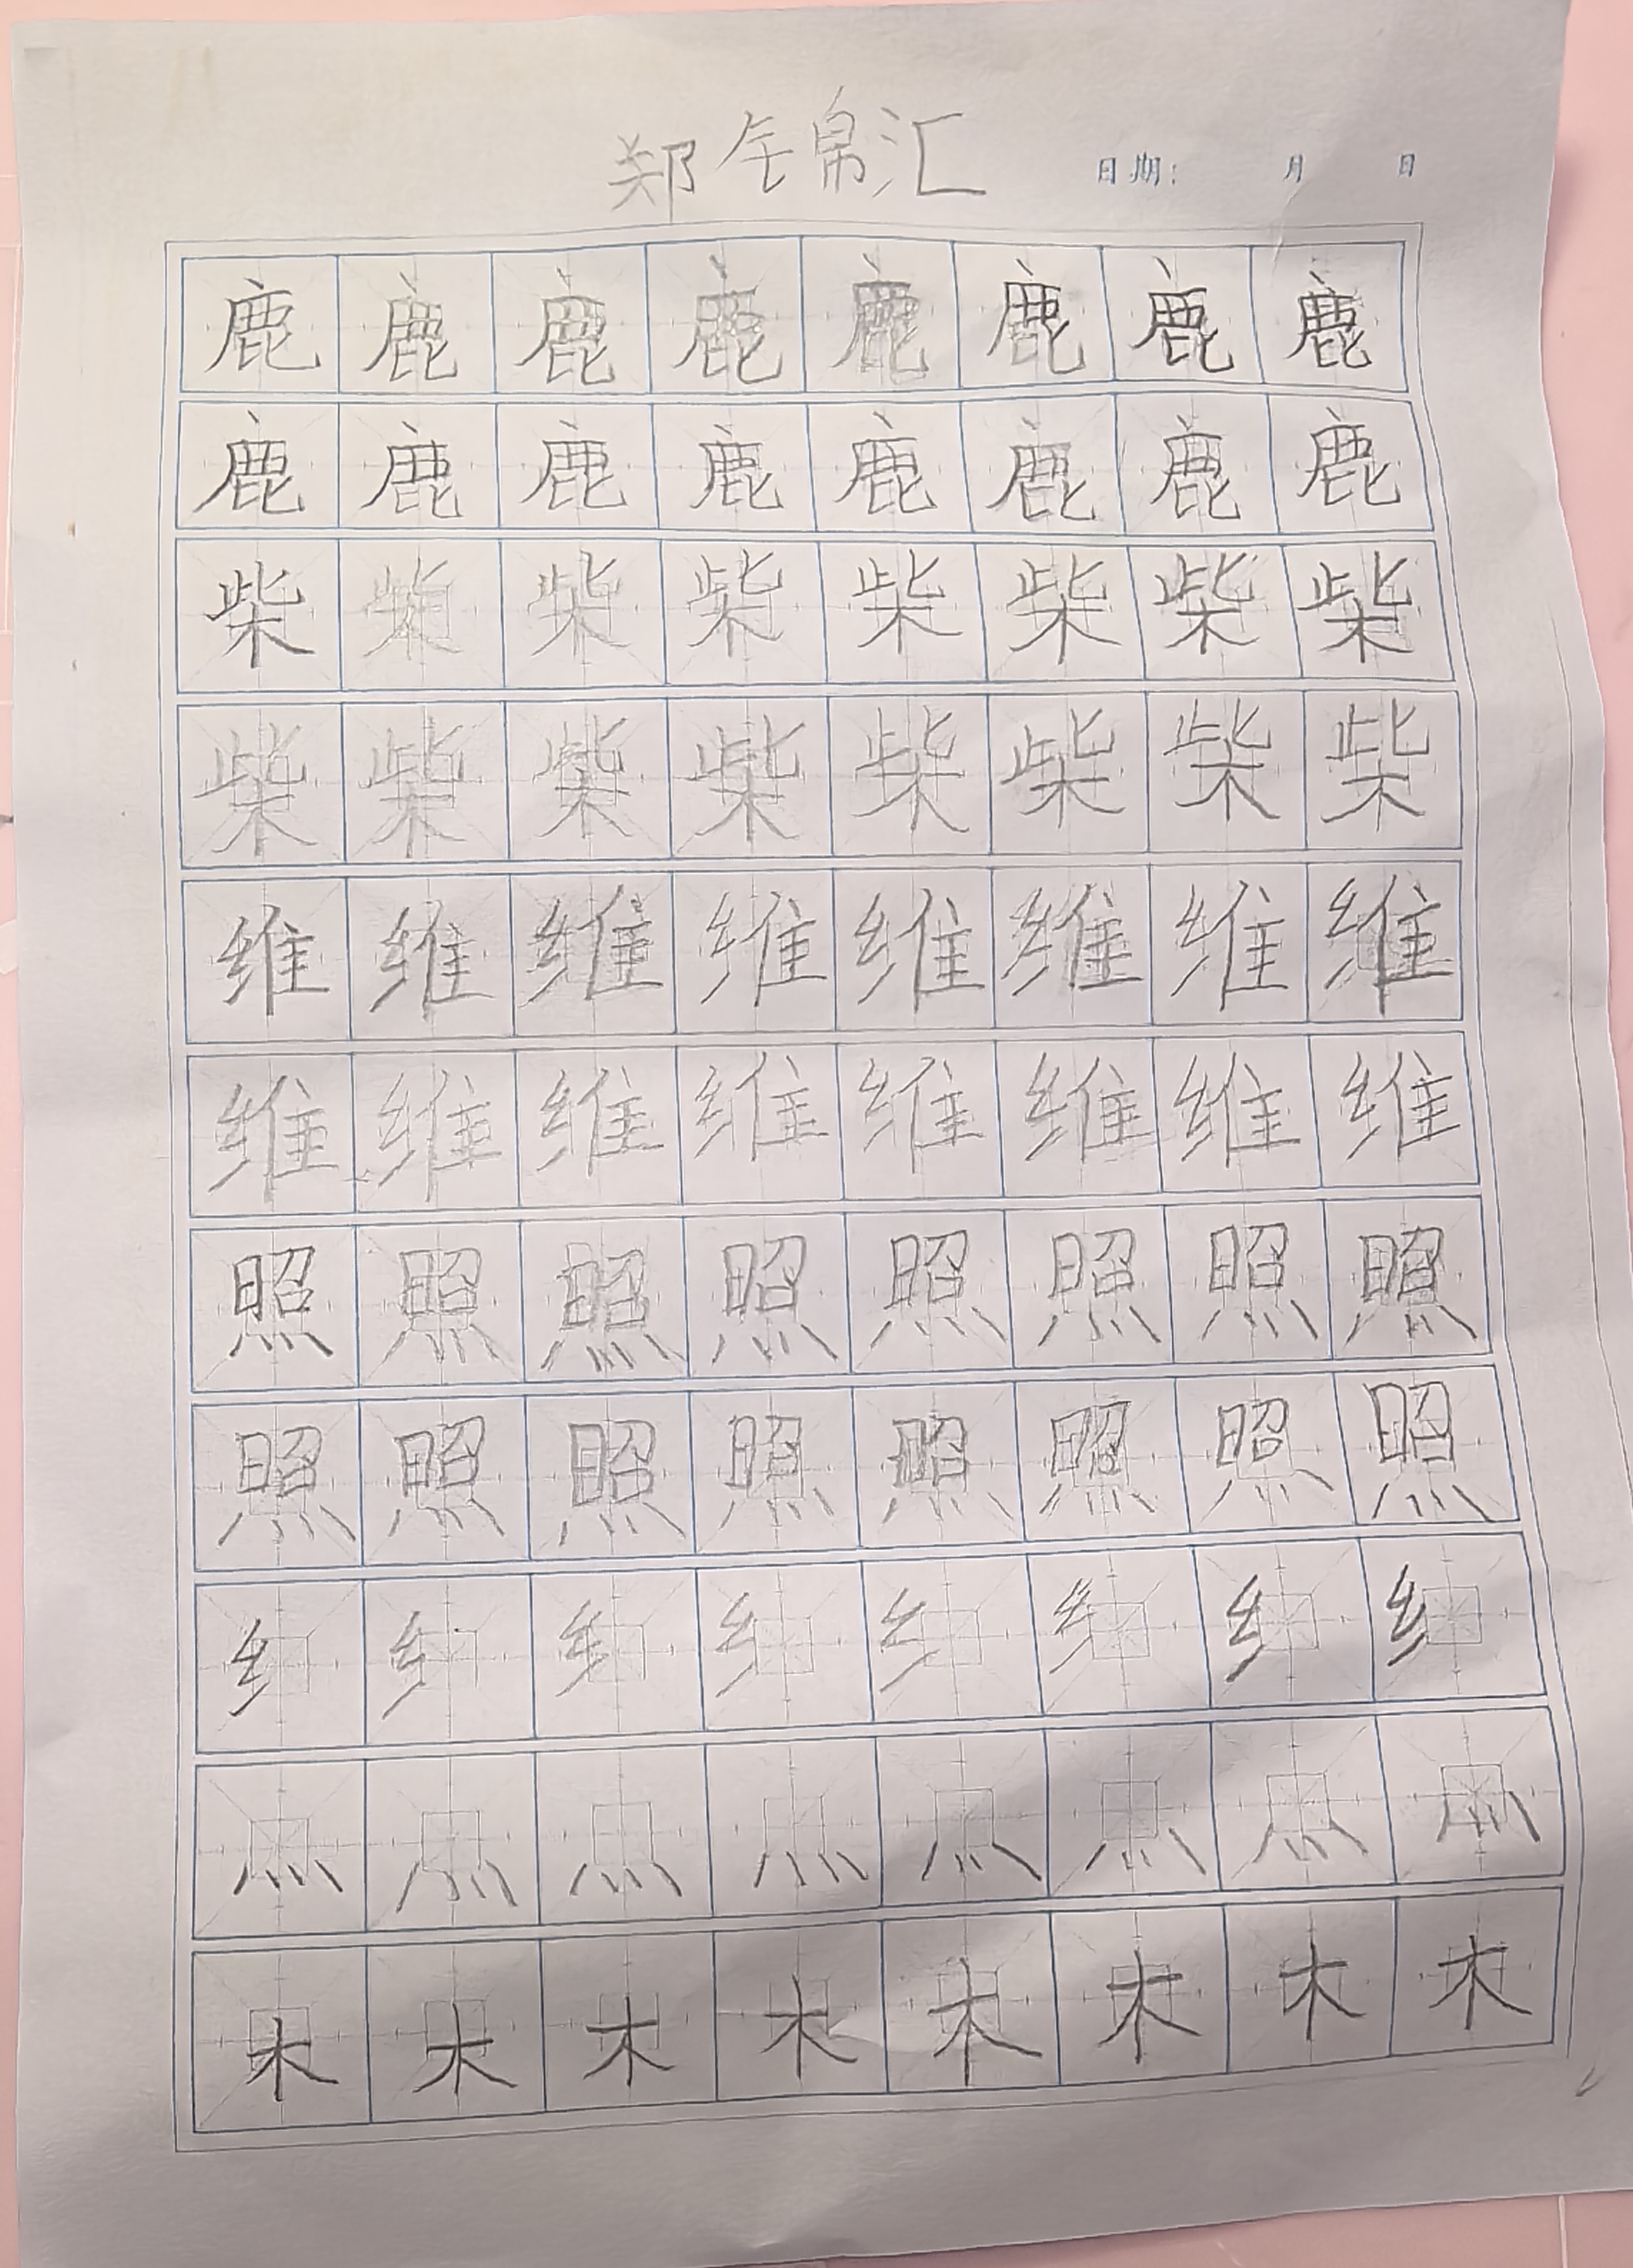 郑锦汇
日期: 月 日
鹿 鹿 鹿 鹿 鹿 鹿 鹿 鹿
鹿 鹿 鹿 鹿 鹿 鹿 鹿 鹿
柴 柴 柴 柴 柴 柴 柴 柴
柴 柴 柴 柴 柴 柴 柴 柴
维 维 维 维 维 维 维 维
维 维 维 维 维 维 维 维
照 照 照 照 照 照 照 照
照 照 照 照 照 照 照 照
纟 纟 纟 纟 纟 纟 纟 纟
灬 灬 灬 灬 灬 灬 灬 灬
木 木 木 木 木 木 木 木